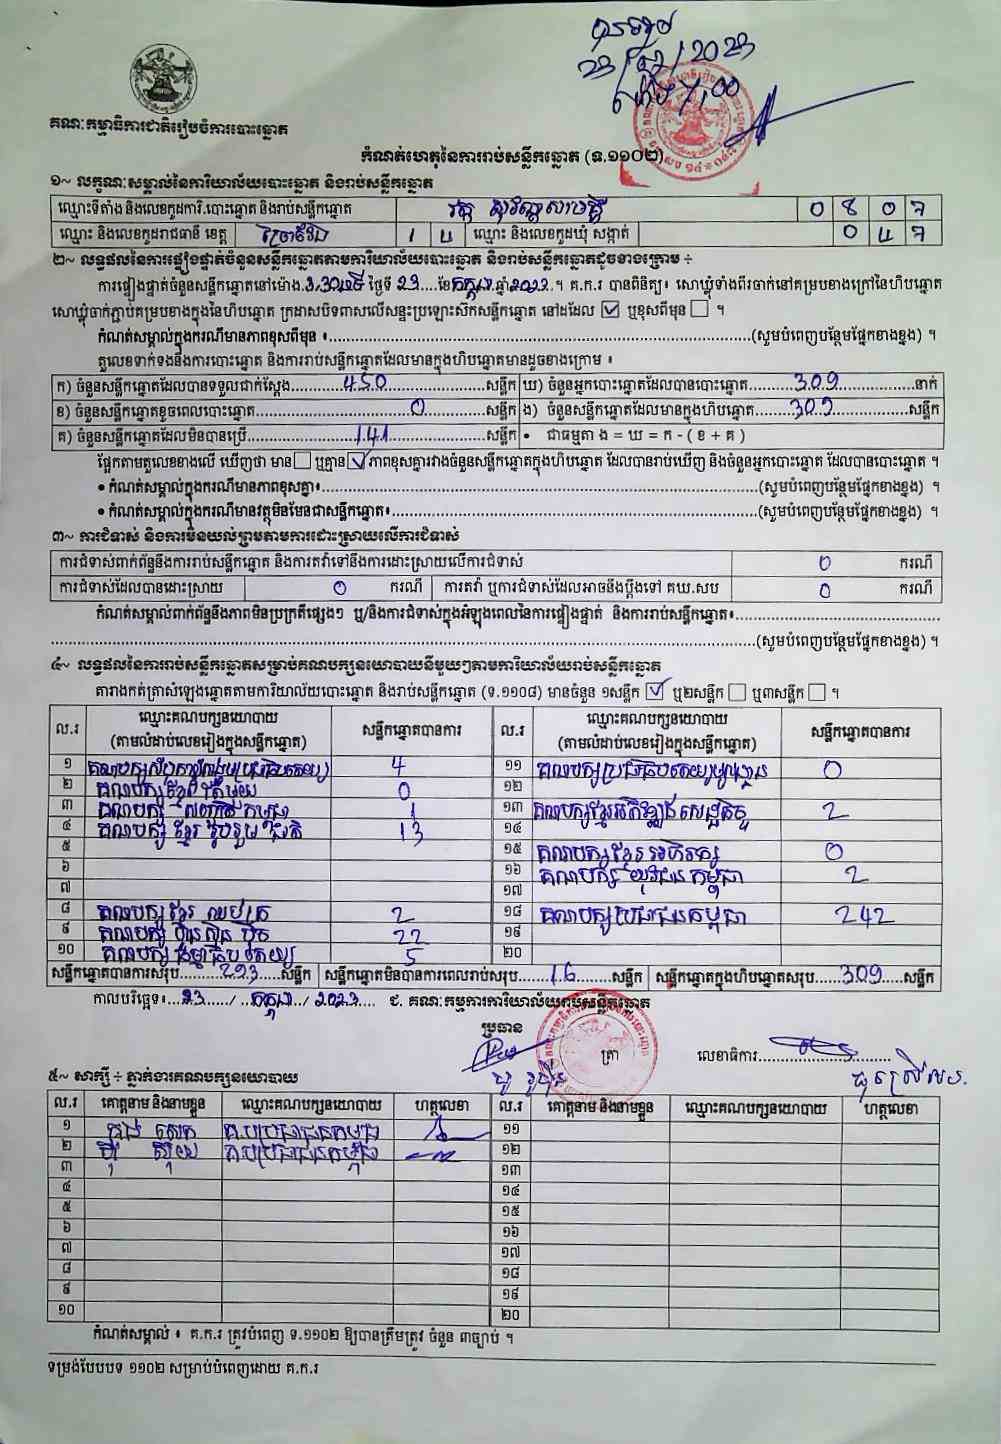 គណៈកម្មាធិការជាតិរៀបចំការបោះឆ្នោត
កំណត់ហេតុនៃការរាប់សន្លឹកឆ្នោត (ទ.១១០២)
១~ លក្ខណៈសម្គាល់នៃការិយាល័យបោះឆ្នោត និងរាប់សន្លឹកឆ្នោត
ឈ្មោះទីតាំង និងលេខកូដការិ.បោះឆ្នោត និងរាប់សន្លឹកឆ្នោត វត្ត
ឈ្មោះ និងលេខកូដរាជធានី ខេត្ត ព្រៃវែង ឈ្មោះ និងលេខកូដឃុំ សង្កាត់
២~ លទ្ធផលនៃការផ្ទៀងផ្ទាត់ចំនួនសន្លឹកឆ្នោតតាមការិយាល័យបោះឆ្នោត និងរាប់សន្លឹកឆ្នោតដូចខាងក្រោម ÷
ការផ្ទៀងផ្ទាត់ចំនួនសន្លឹកឆ្នោតនៅម៉ោង 3,30 ថ្ងៃទី 23 ខែ កក្កដា ឆ្នាំ ។ គ.ក.រ បានពិនិត្យ៖ សោឃ្លុំទាំងពីរចាក់នៅគម្របខាងក្រៅនៃហិបឆ្នោត
សោឃ្លុំចាក់ភ្ជាប់គម្របខាងក្នុងនៃហិបឆ្នោត ក្រដាសបិទពាសលើសន្ទះប្រឡោះស៊កសន្លឹកឆ្នោត នៅដដែល ☑ ឬខុសពីមុន ☐ ។
កំណត់សម្គាល់ក្នុងករណីមានភាពខុសពីមុន ៖ (សូមបំពេញបន្ថែមផ្នែកខាងខ្នង) ។
តួលេខទាក់ទងនឹងការបោះឆ្នោត និងការរាប់សន្លឹកឆ្នោតដែលមានក្នុងហិបឆ្នោតមានដូចខាងក្រោម ៖
ក) ចំនួនសន្លឹកឆ្នោតដែលបានទទួលជាក់ស្តែង 450 សន្លឹក ឃ) ចំនួនអ្នកបោះឆ្នោតដែលបានបោះឆ្នោត 309 នាក់
ខ) ចំនួនសន្លឹកឆ្នោតខូចពេលបោះឆ្នោត 0 សន្លឹក ង) ចំនួនសន្លឹកឆ្នោតដែលមានក្នុងហិបឆ្នោត 309 សន្លឹក
គ) ចំនួនសន្លឹកឆ្នោតដែលមិនបានប្រើ 141 សន្លឹក • ជាធម្មតា ង = ឃ = ក - ( ខ + គ )
ផ្អែកតាមតួលេខខាងលើ ឃើញថា មាន ☐ ឬគ្មាន ☑ ភាពខុសគ្នារវាងចំនួនសន្លឹកឆ្នោតក្នុងហិបឆ្នោត ដែលបានរាប់ឃើញ និងចំនួនអ្នកបោះឆ្នោត ដែលបានបោះឆ្នោត ។
• កំណត់សម្គាល់ក្នុងករណីមានភាពខុសគ្នា៖ (សូមបំពេញបន្ថែមផ្នែកខាងខ្នង) ។
• កំណត់សម្គាល់ក្នុងករណីមានវត្ថុមិនមែនជាសន្លឹកឆ្នោត៖ (សូមបំពេញបន្ថែមផ្នែកខាងខ្នង) ។
៣~ ការជំទាស់ និងការមិនយល់ព្រមតាមការដោះស្រាយលើការជំទាស់
ការជំទាស់ពាក់ព័ន្ធនឹងការរាប់សន្លឹកឆ្នោត និងការតវ៉ាទៅនឹងការដោះស្រាយលើការជំទាស់ 0 ករណី
ការជំទាស់ដែលបានដោះស្រាយ 0 ករណី ការតវ៉ា ឬការជំទាស់ដែលអាចនឹងប្តឹងទៅ គឃ.សប 0 ករណី
កំណត់សម្គាល់ពាក់ព័ន្ធនឹងភាពមិនប្រក្រតីផ្សេងៗ ឬ/និងការជំទាស់ក្នុងអំឡុងពេលនៃការផ្ទៀងផ្ទាត់ និងការរាប់សន្លឹកឆ្នោត៖
(សូមបំពេញបន្ថែមផ្នែកខាងខ្នង) ។
៤~ លទ្ធផលនៃការរាប់សន្លឹកឆ្នោតសម្រាប់គណបក្សនយោបាយនីមួយៗតាមការិយាល័យរាប់សន្លឹកឆ្នោត
តារាងកត់ត្រាសំឡេងឆ្នោតតាមការិយាល័យបោះឆ្នោត និងរាប់សន្លឹកឆ្នោត (ទ.១១០៨) មានចំនួន ១សន្លឹក ☑ ឬ២សន្លឹក ☐ ឬ៣សន្លឹក ☐ ។
ល.រ ឈ្មោះគណបក្សនយោបាយ (តាមលំដាប់លេខរៀងក្នុងសន្លឹកឆ្នោត) សន្លឹកឆ្នោតបានការ ល.រ ឈ្មោះគណបក្សនយោបាយ (តាមលំដាប់លេខរៀងក្នុងសន្លឹកឆ្នោត) សន្លឹកឆ្នោតបានការ
១ គណបក្ស 4 ១១ គណបក្សប្រជាធិបតេយ្យមូលដ្ឋាន 0
២ គណបក្ស 0 ១២
៣ គណបក្ស កម្ពុជា 1 ១៣ គណបក្សខ្មែរអភិវឌ្ឍន៍សេដ្ឋកិច្ច 2
៤ គណបក្ស ខ្មែរ រួបរួម ជាតិ 13 ១៤
៥ ១៥ គណបក្សខ្មែរ 0
៦ ១៦ គណបក្ស យុវជន កម្ពុជា 2
៧ ១៧
៨ គណបក្ស ខ្មែរ ឈប់ក្រ 2 ១៨ គណបក្សប្រជាជនកម្ពុជា 242
៩ គណបក្ស ហ៊្វុនស៊ិនប៉ិច 22 ១៩
១០ គណបក្ស ធម្មាធិបតេយ្យ 5 ២០
សន្លឹកឆ្នោតបានការសរុប 293 សន្លឹក សន្លឹកឆ្នោតមិនបានការពេលរាប់សរុប 16 សន្លឹក សន្លឹកឆ្នោតក្នុងហិបឆ្នោតសរុប 309 សន្លឹក
កាលបរិច្ឆេទ៖ 23 / កក្កដា / 2023 ជ. គណៈកម្មការការិយាល័យរាប់សន្លឹកឆ្នោត
ប្រធាន
ត្រា លេខាធិការ
៥~ សាក្សី ÷ ភ្នាក់ងារគណបក្សនយោបាយ
ល.រ គោត្តនាម និងនាមខ្លួន ឈ្មោះគណបក្សនយោបាយ ហត្ថលេខា ល.រ គោត្តនាម និងនាមខ្លួន ឈ្មោះគណបក្សនយោបាយ ហត្ថលេខា
១ គ.បប្រជាជនកម្ពុជា ១១
២ គ.បប្រជាជនកម្ពុជា ១២
៣ ១៣
៤ ១៤
៥ ១៥
៦ ១៦
៧ ១៧
៨ ១៨
៩ ១៩
១០ ២០
កំណត់សម្គាល់ ៖ គ.ក.រ ត្រូវបំពេញ ទ.១១០២ ឱ្យបានត្រឹមត្រូវ ចំនួន ៣ច្បាប់ ។
ទម្រង់បែបបទ ១១០២ សម្រាប់បំពេញដោយ គ.ក.រ